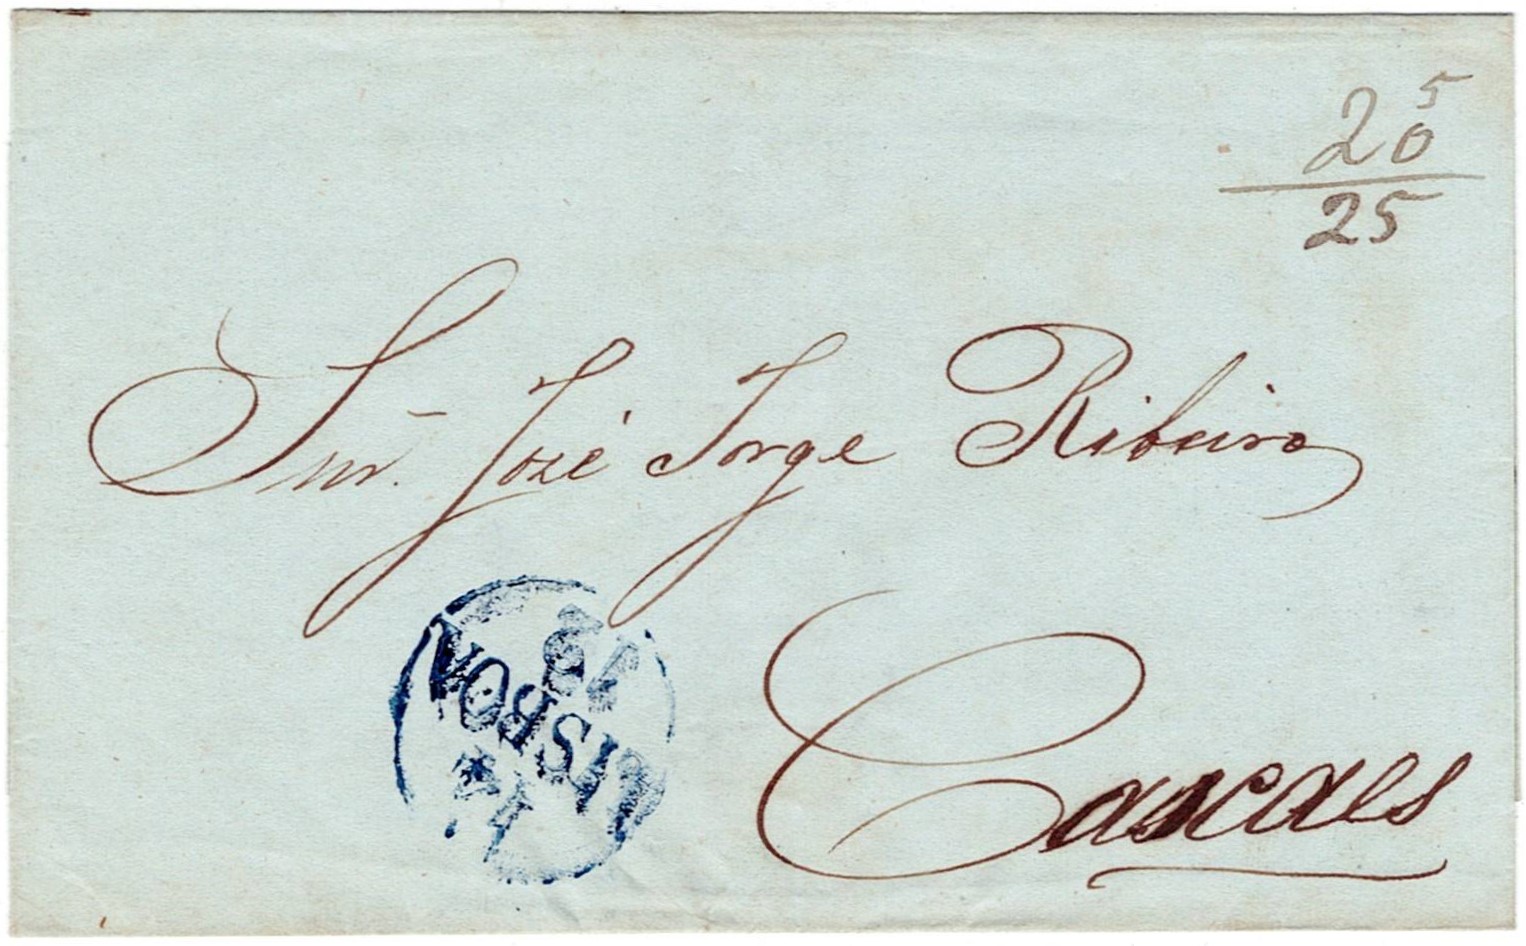 5
20
25
Snr. José Jorge Ribeiro
Cascaes
12
LISBOA